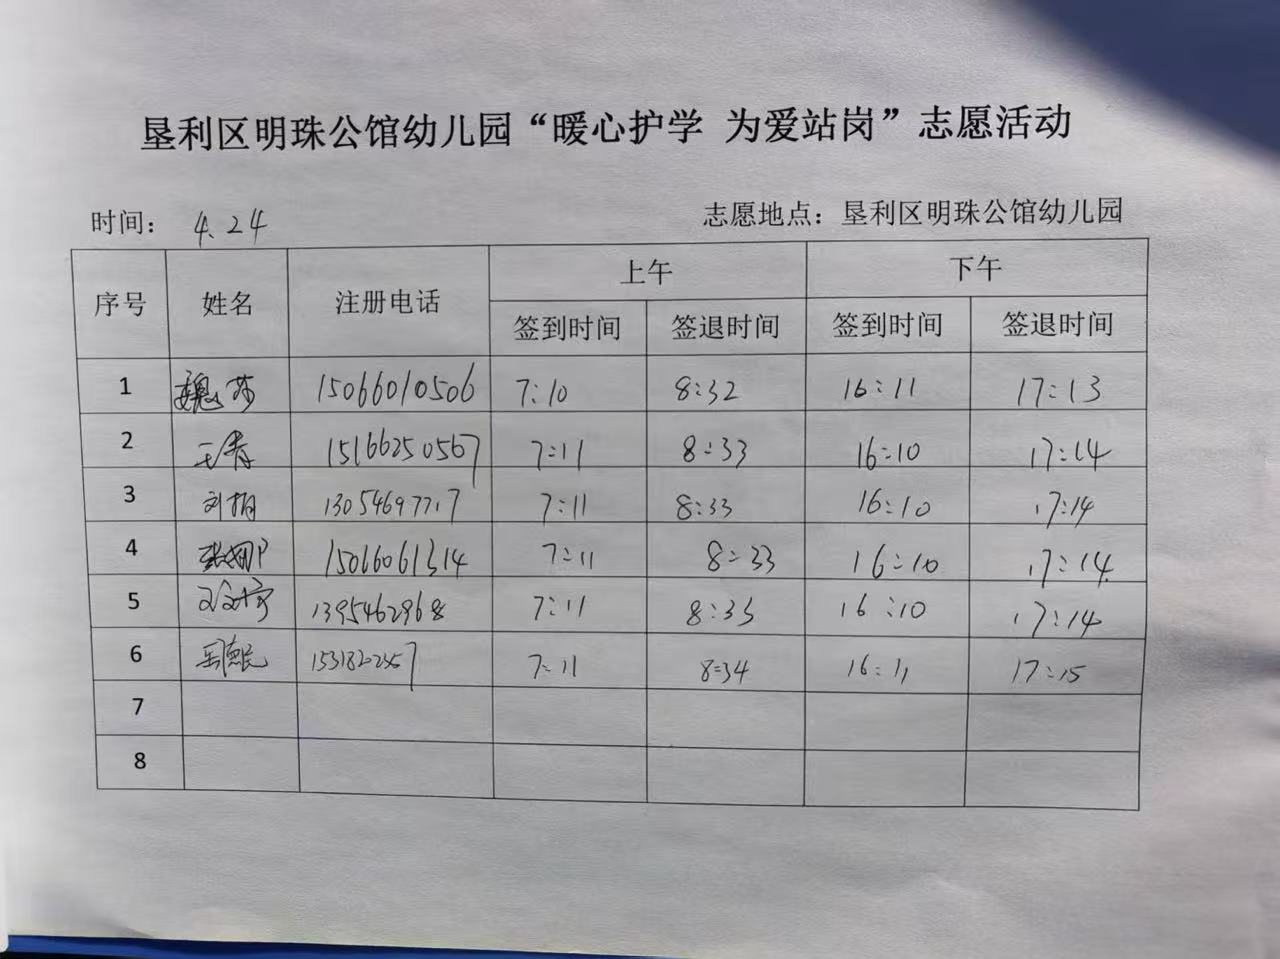 垦利区明珠公馆幼儿园“暖心护学 为爱站岗”志愿活动
时间： 4.24 志愿地点：垦利区明珠公馆幼儿园
序号 姓名 注册电话 上午 下午
签到时间 签退时间 签到时间 签退时间
1 魏莎 15066010506 7:10 8:32 16:11 17:13
2 王青 15166250567 7:11 8:33 16:10 17:14
3 刘 7:11 8:33 16:10 17:14
4 15066061314 7:11 8:33 16:10 17:14
5 7:11 8:33 16:10 17:14
6 7:11 8:34 16:11 17:15
7
8